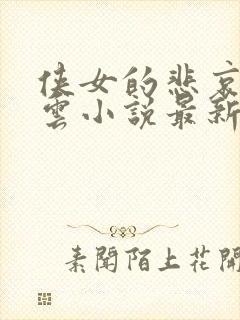 侠女的悲哀
雲小説最新
素聞陌上花開